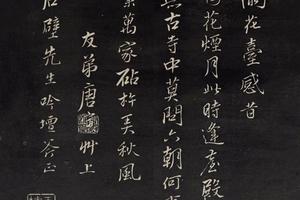 花臺感昔
荷花煙月此時逢臺殿
與古寺中莫問六朝何
萬家砧杵美秋風
友弟唐寅艸上
石壁先生吟壇斧正